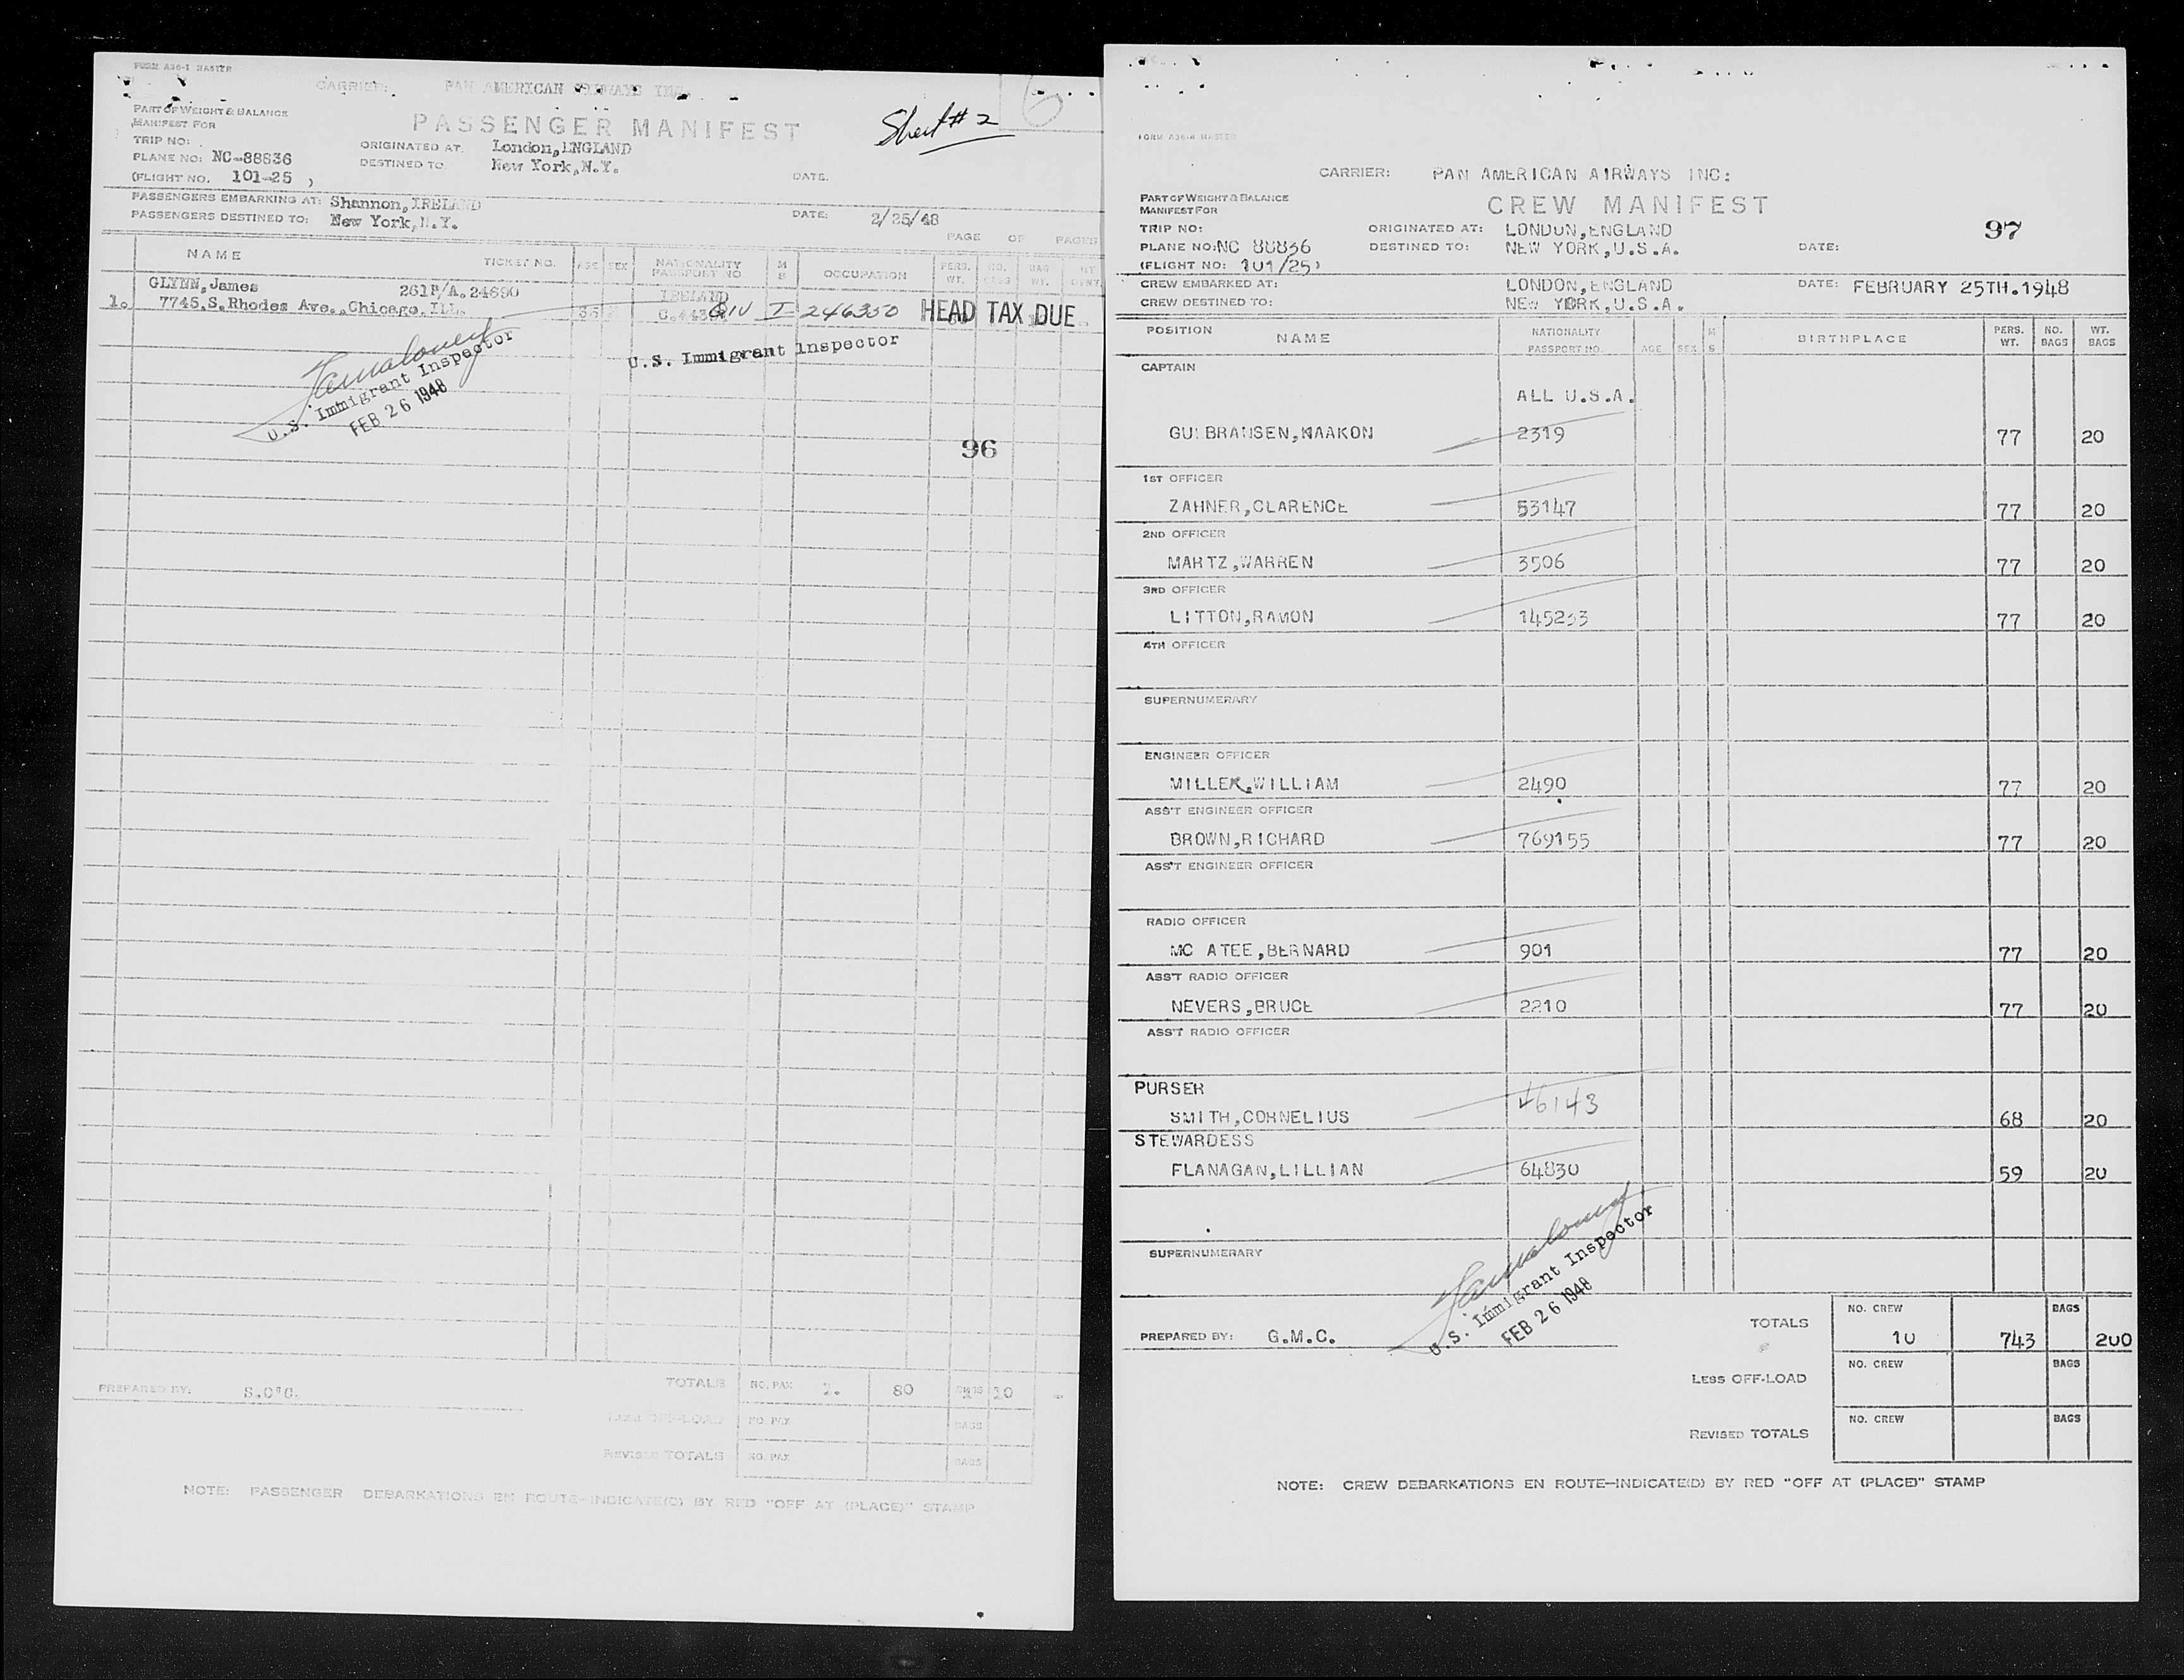 FORM A36-1 MASTER
CARRIER: PAN AMERICAN AIRWAYS INC.
PART OF WEIGHT & BALANCE
MANIFEST FOR
PASSENGER MANIFEST
Sheet # 2
TRIP NO:
ORIGINATED AT: London, ENGLAND
PLANE NO: NC-88836
DESTINED TO: New York, N.Y.
DATE:
(FLIGHT NO. 101-25 )
PASSENGERS EMBARKING AT: Shannon, IRELAND
DATE: 2/25/48
PASSENGERS DESTINED TO: New York, N.Y.
PAGE OF PAGES
NAME TICKET NO. AGE SEX NATIONALITY PASSPORT NO. M S OCCUPATION PERS. WT. NO. BAGS BAG WT.
GLYNN, James 261P/A. 24690 IRELAND
1. 7745, S. Rhodes Ave., Chicago, ILL. QIV I-246350 HEAD TAX DUE
U.S. Immigrant Inspector
U.S. Immigrant Inspector
FEB 26 1948
96
PREPARED BY: S.O'C.
TOTALS NO. PAX 1. 80 BAGS
LESS OFF-LOAD NO. PAX BAGS
REVISED TOTALS NO. PAX BAGS
NOTE: PASSENGER DEBARKATIONS EN ROUTE-INDICATE(D) BY RED "OFF AT (PLACE)" STAMP
FORM A36-6 MASTER
CARRIER: PAN AMERICAN AIRWAYS INC:
PART OF WEIGHT & BALANCE
MANIFEST FOR
CREW MANIFEST
97
TRIP NO:
ORIGINATED AT: LONDON, ENGLAND
PLANE NO: NC 88836
DESTINED TO: NEW YORK, U.S.A.
DATE:
(FLIGHT NO: 101/25)
CREW EMBARKED AT: LONDON, ENGLAND
DATE: FEBRUARY 25TH.1948
CREW DESTINED TO: NEW YORK, U.S.A.
POSITION NAME NATIONALITY PASSPORT NO. AGE SEX M S BIRTHPLACE PERS. WT. NO. BAGS WT. BAGS
CAPTAIN
ALL U.S.A.
GULBRANSEN, HAAKON 2319 77 20
1ST OFFICER
ZAHNER, CLARENCE 53147 77 20
2ND OFFICER
MARTZ, WARREN 3506 77 20
3RD OFFICER
LITTON, RAMON 77 20
4TH OFFICER
SUPERNUMERARY
ENGINEER OFFICER
MILLER, WILLIAM 2490 77 20
ASS'T ENGINEER OFFICER
BROWN, RICHARD 769155 77 20
ASS'T ENGINEER OFFICER
RADIO OFFICER
MC ATEE, BERNARD 901 77 20
ASS'T RADIO OFFICER
NEVERS, BRUCE 2210 77 20
ASS'T RADIO OFFICER
PURSER
SMITH, CORNELIUS 46143 68 20
STEWARDESS
FLANAGAN, LILLIAN 64830 59 20
SUPERNUMERARY
U.S. Immigrant Inspector
FEB 26 1948
PREPARED BY: G.M.C.
TOTALS NO. CREW 10 743 BAGS 200
LESS OFF-LOAD NO. CREW BAGS
REVISED TOTALS NO. CREW BAGS
NOTE: CREW DEBARKATIONS EN ROUTE-INDICATE(D) BY RED "OFF AT (PLACE)" STAMP